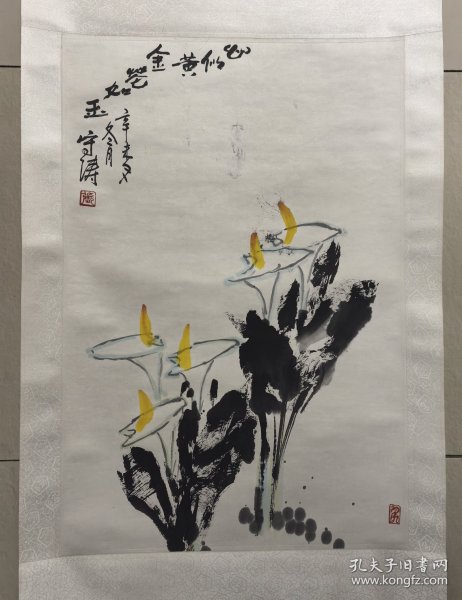 心似黄金花如玉
辛未
冬月
守涛
孔夫子旧书网
www.kongfz.com